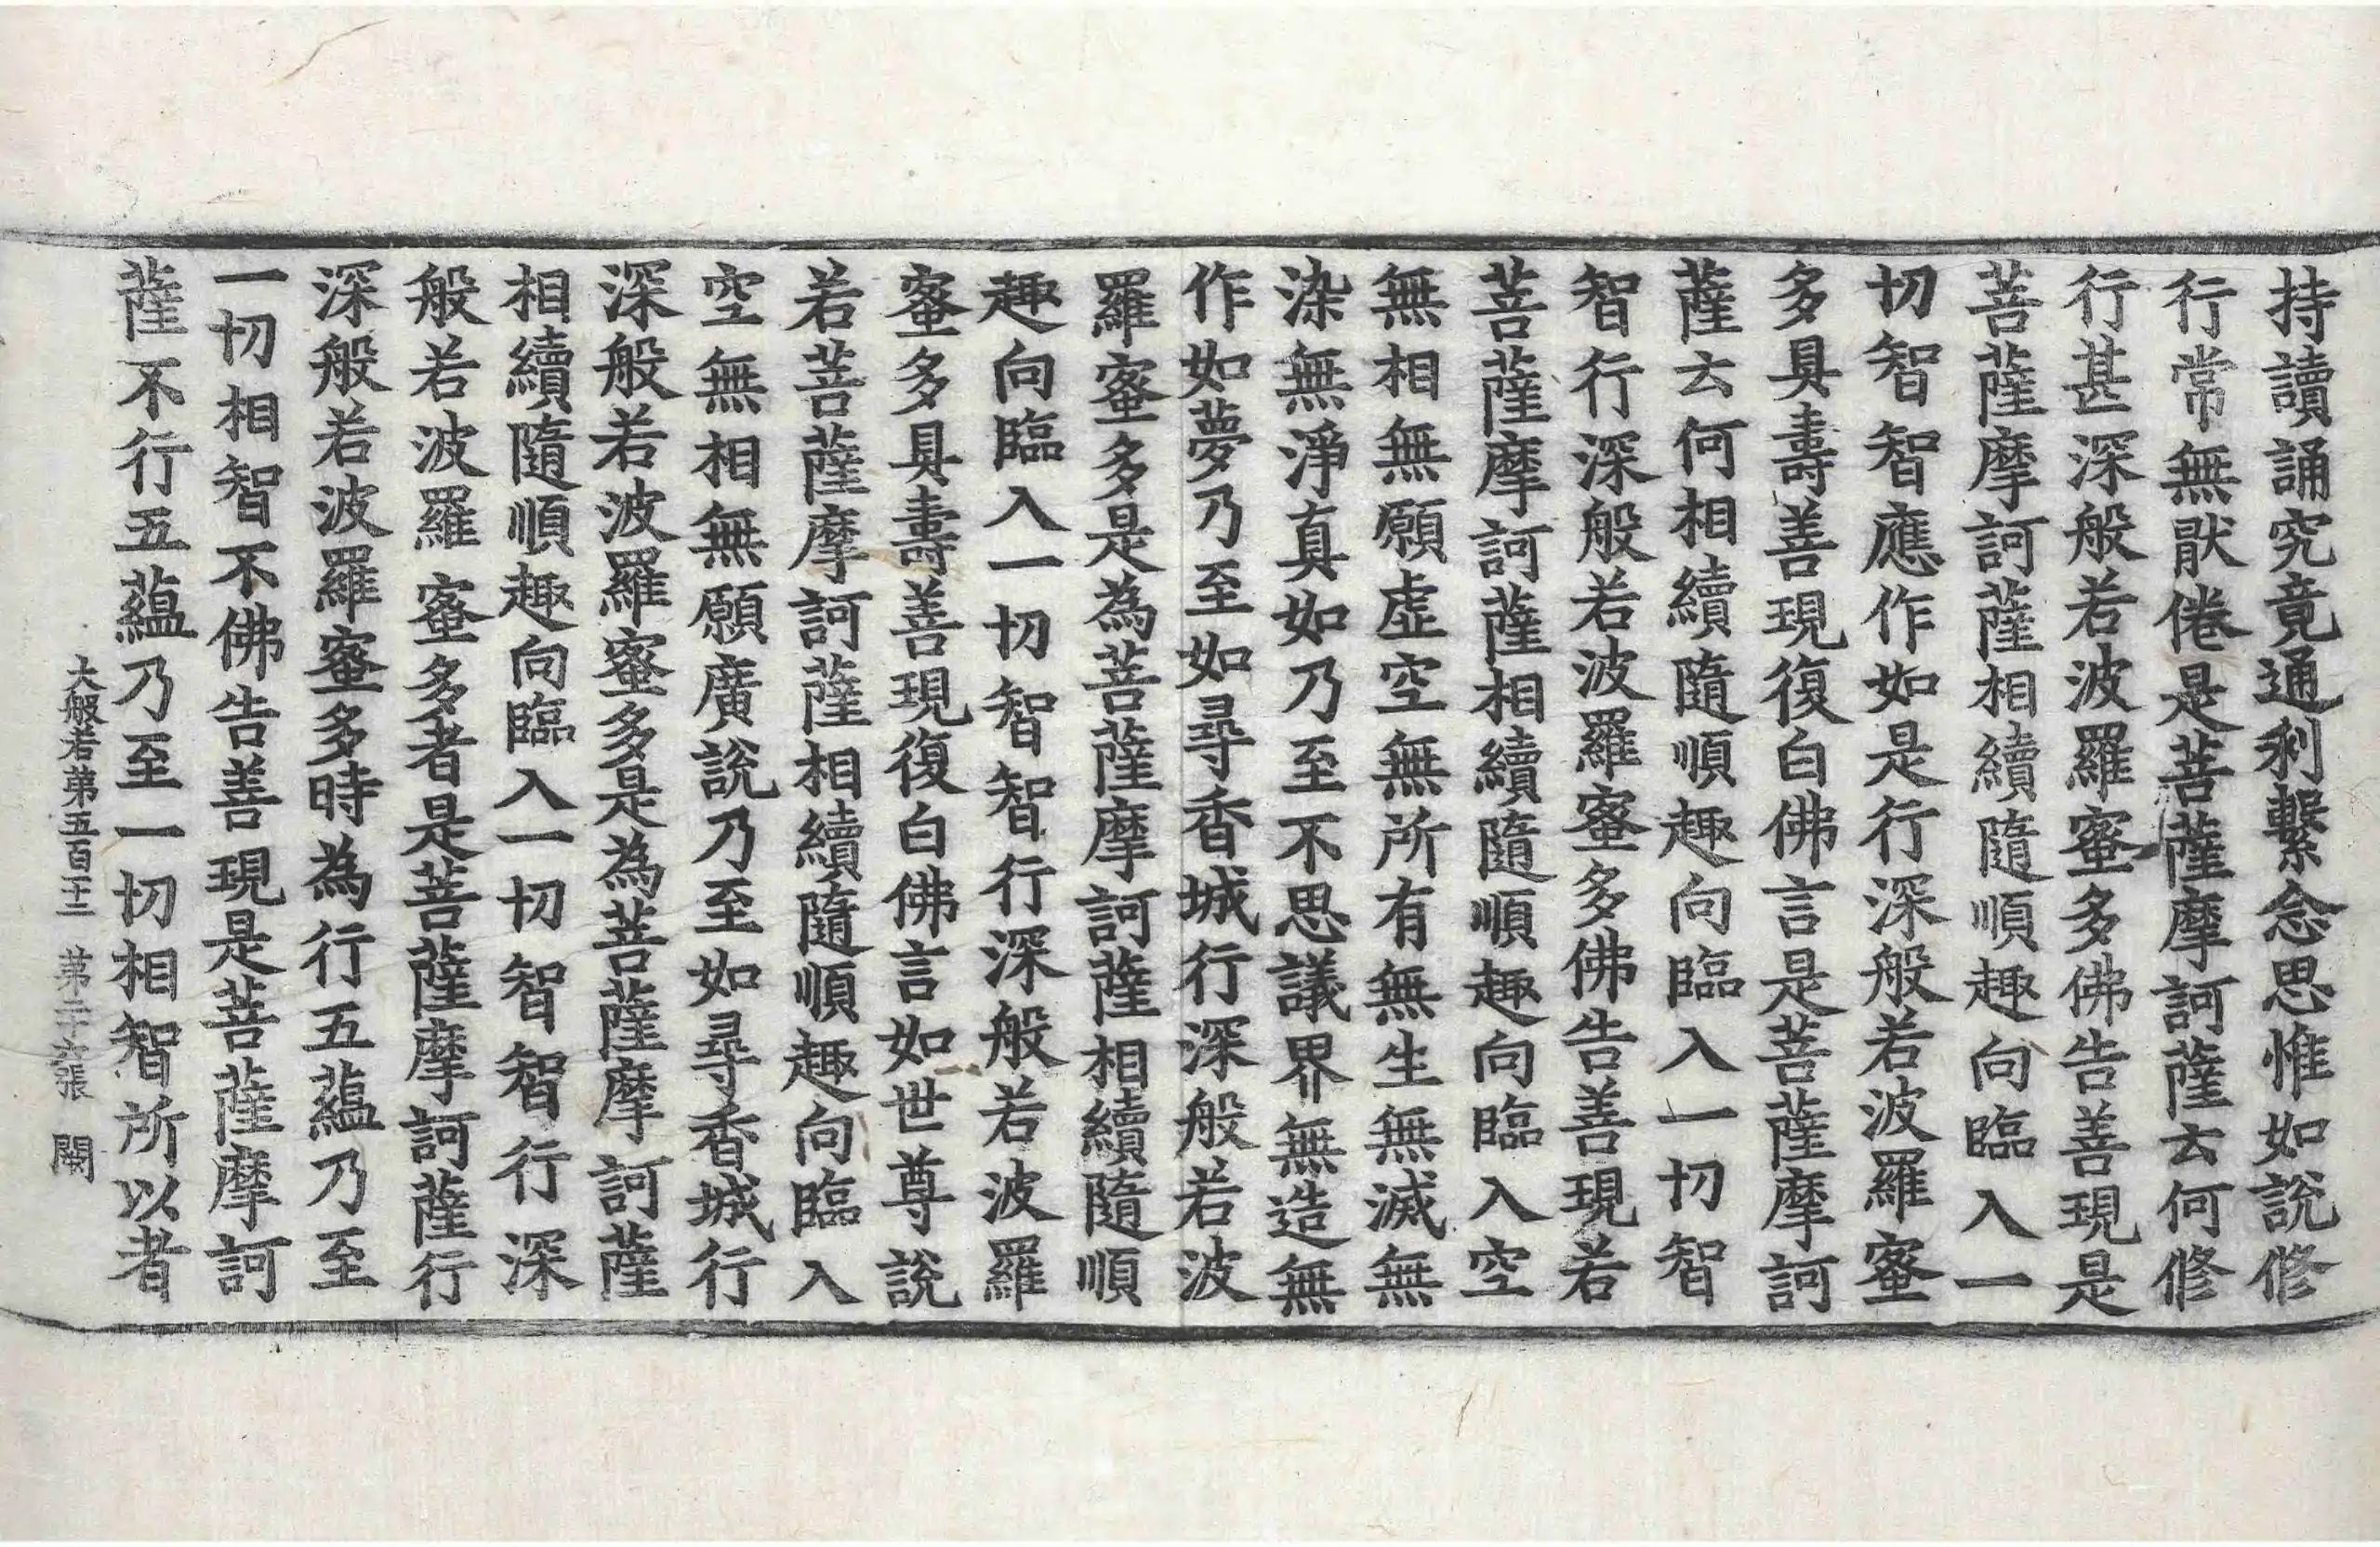 持讀誦究竟通利繫念思惟如說修
行常無猒倦是菩薩摩訶薩云何修
行甚深般若波羅蜜多佛告善現是
菩薩摩訶薩相續隨順趣向臨入一
切智智應作如是行深般若波羅蜜
多具壽善現復白佛言是菩薩摩訶
薩云何相續隨順趣向臨入一切智
智行深般若波羅蜜多佛告善現若
菩薩摩訶薩相續隨順趣向臨入空
無相無願虛空無所有無生無滅無
染無淨真如乃至不思議界無造無
作如夢乃至如尋香城行深般若波
羅蜜多是為菩薩摩訶薩相續隨順
趣向臨入一切智智行深般若波羅
蜜多具壽善現復白佛言如世尊說
若菩薩摩訶薩相續隨順趣向臨入
空無相無願廣說乃至如尋香城行
深般若波羅蜜多是為菩薩摩訶薩
相續隨順趣向臨入一切智智行深
般若波羅蜜多者是菩薩摩訶薩行
深般若波羅蜜多時為行五蘊乃至
一切相智不佛告善現是菩薩摩訶
薩不行五蘊乃至一切相智所以者
大般若第五百十三 第二十六張 闕